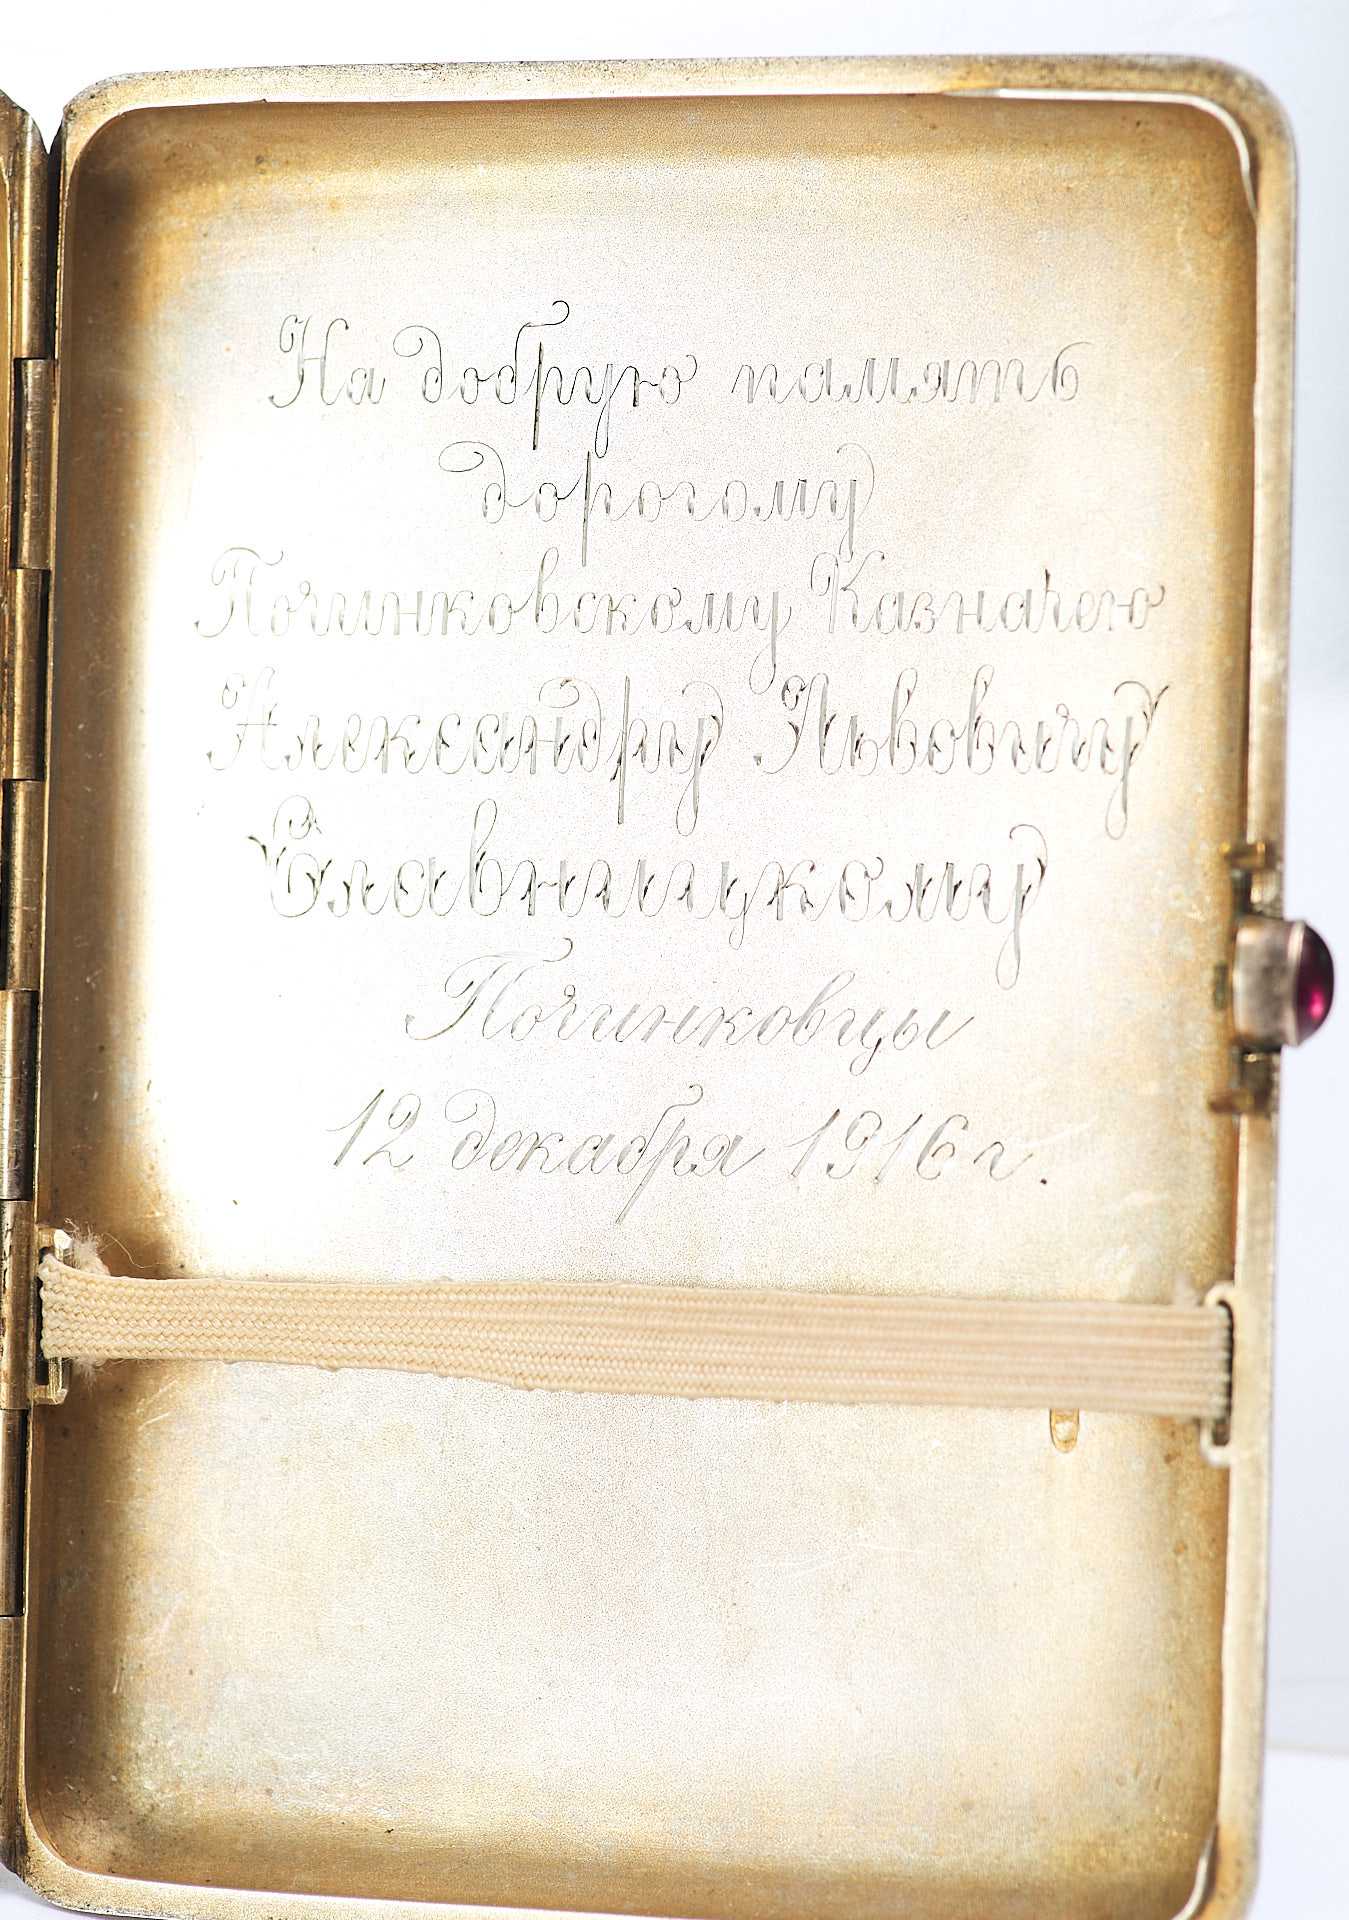 На добрую память
дорогому
Починковскому Казначею
Александру Львовичу
Славницкому
Починковцы
12 декабря 1916 г.